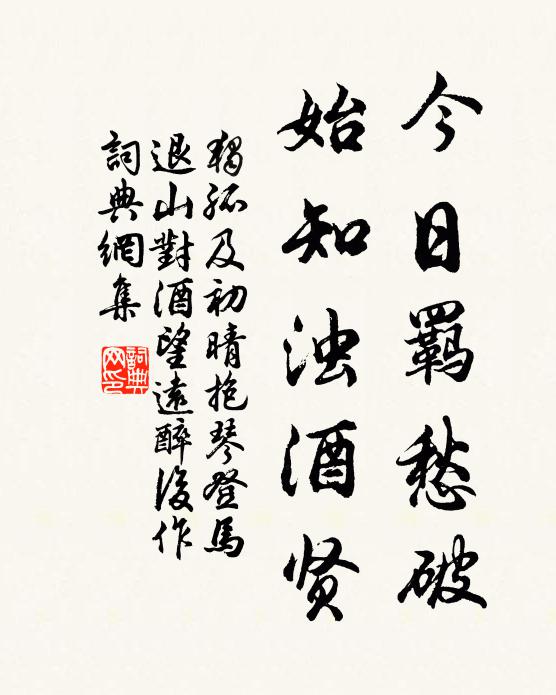 今日羁愁破
始知浊酒贤
獨孤及初晴抱琴登馬
退山對酒望遠醉後作
詞典網集
詞典
网印